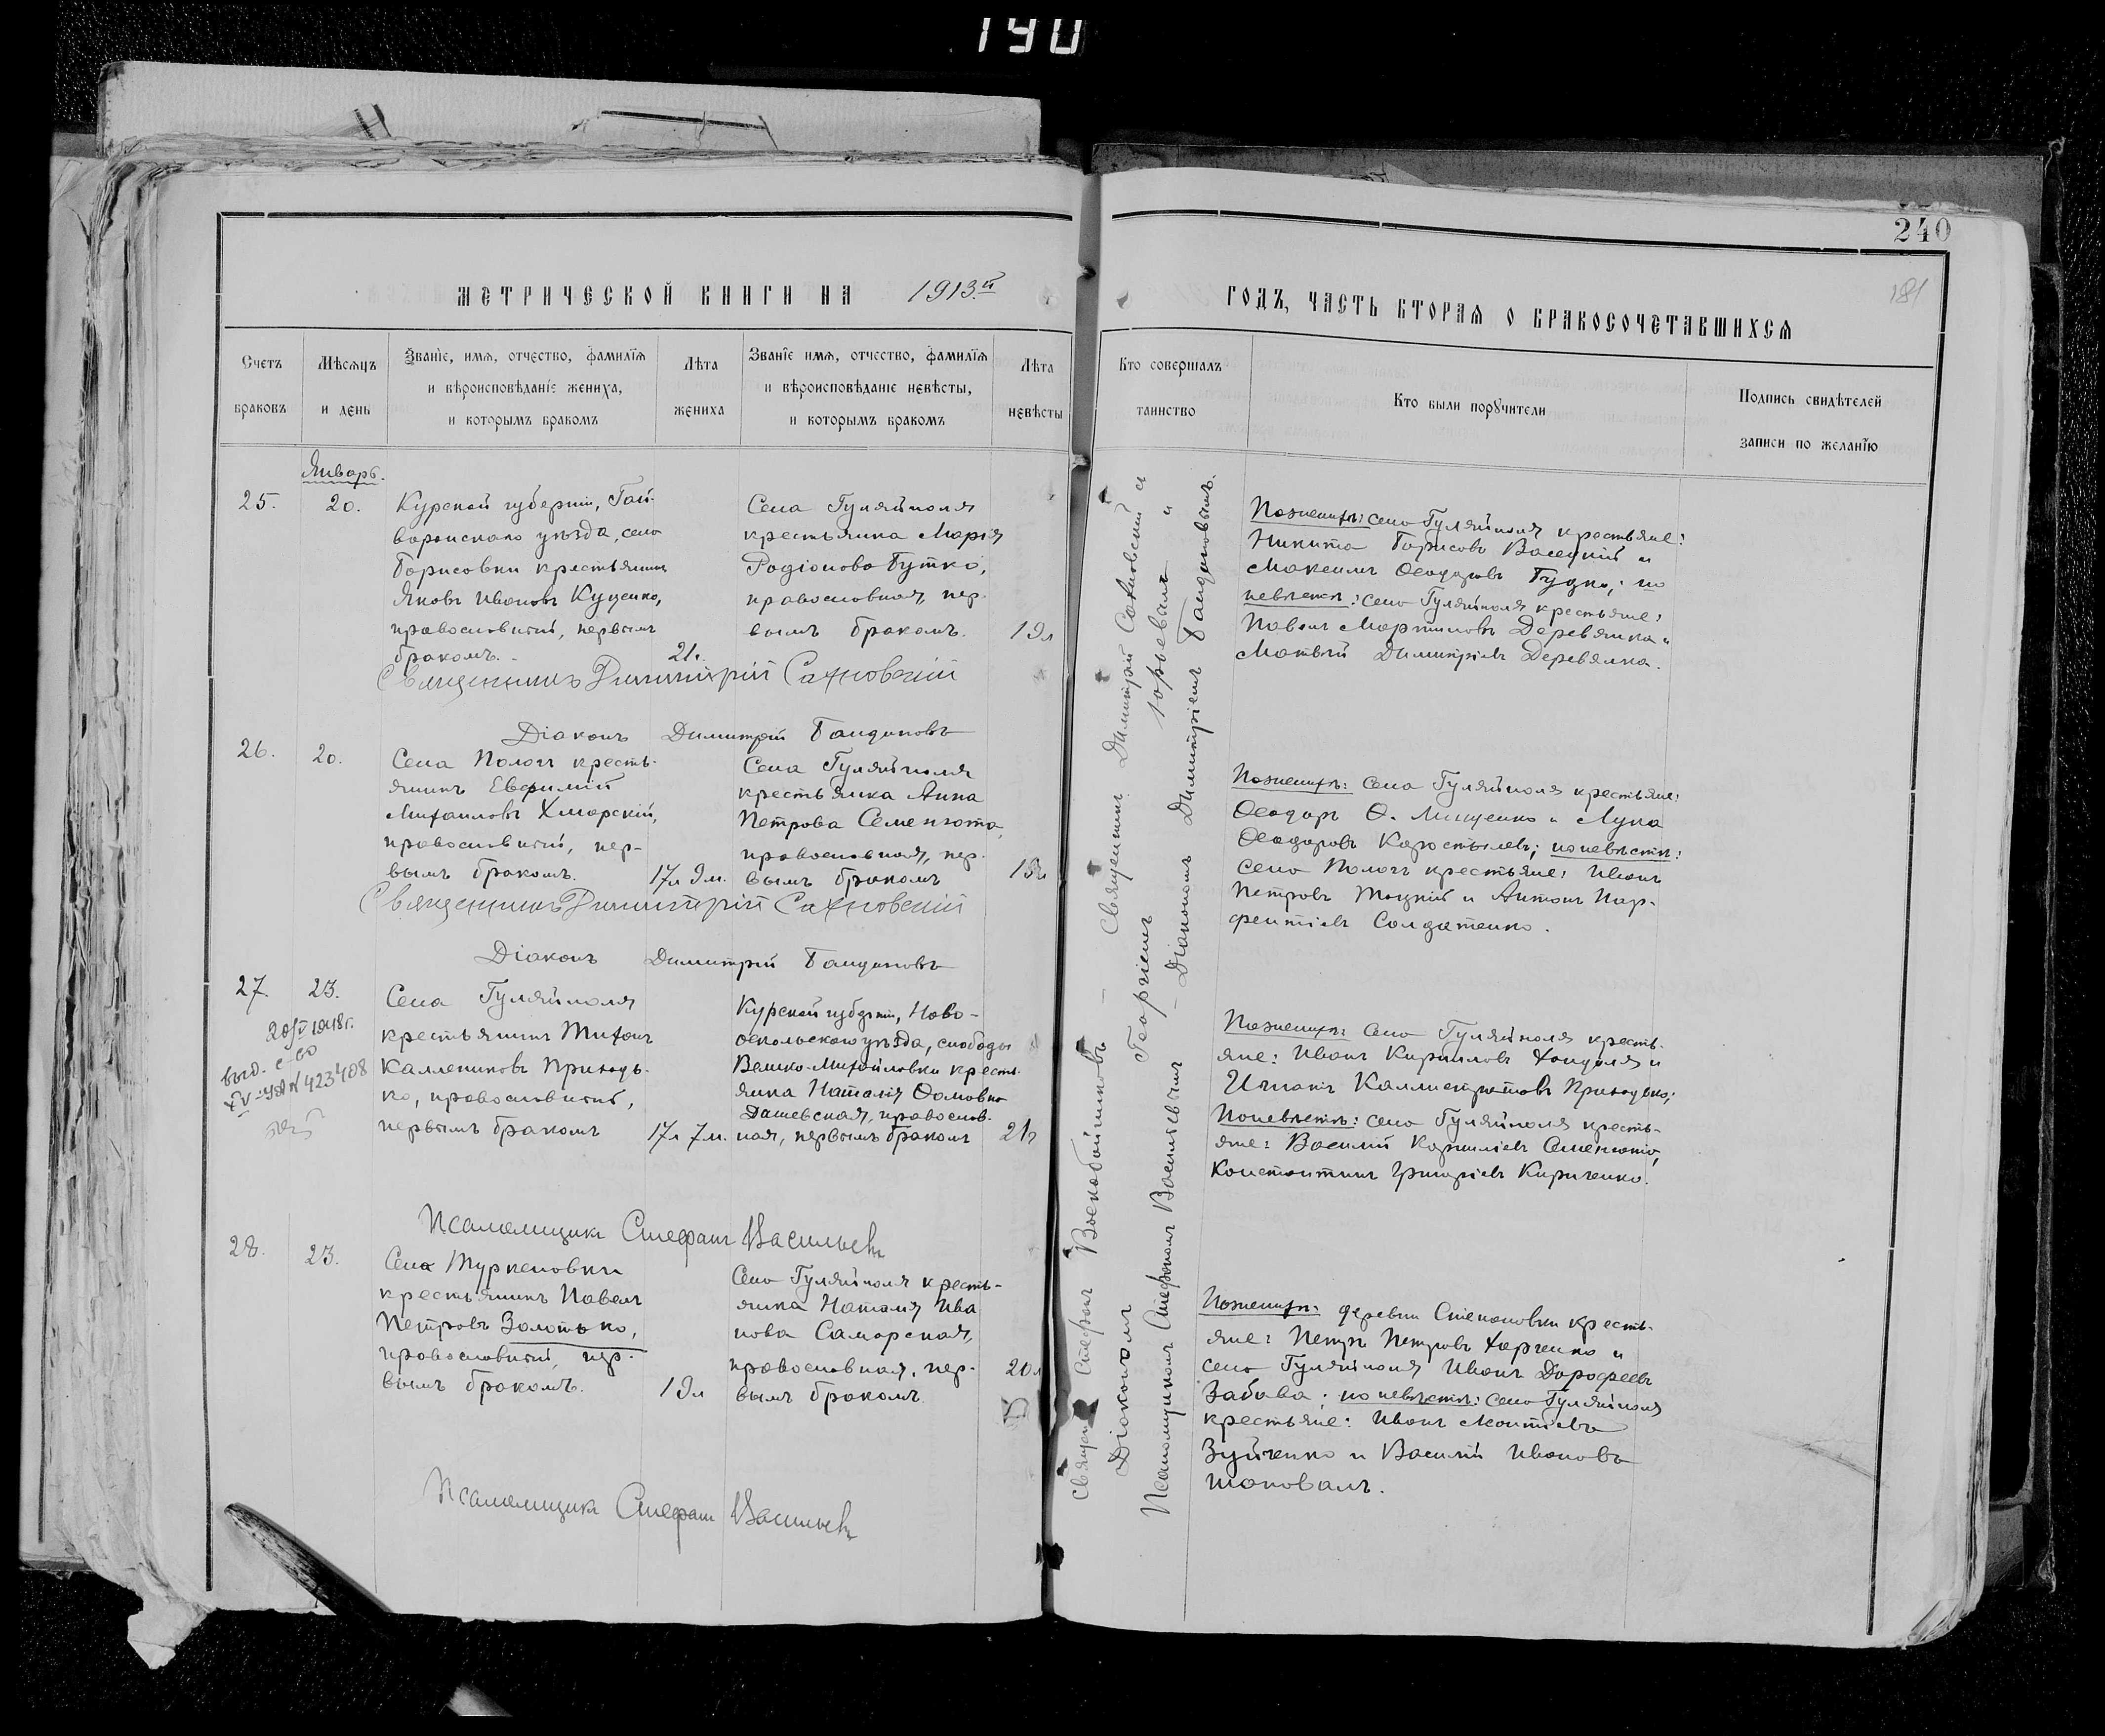 190
240
181
МЕТРИЧЕСКОЙ КНИГИ НА 1913.й
ГОДЪ, ЧАСТЬ ВТОРАЯ О БРАКОСОЧЕТАВШИХСЯ
Счетъ браковъ
Мѣсяцъ и день
Званіе, имя, отчество, фамилія
и вѣроисповѣданіе жениха,
и которымъ бракомъ
Лѣта жениха
Званіе имя, отчество, фамилія
и вѣроисповѣданіе невѣсты,
и которымъ бракомъ
Лѣта невѣсты
Кто совершалъ таинство
Кто были поручители
Подпись свидѣтелей
записи по желанію
Январь.
25.
20.
Курской губерніи, Гай-
воронскаго уѣзда, села
Борисовки крестьянинъ
Яковъ Ивановъ Куценко,
православный, первымъ
бракомъ.
21.
Села Гуляйполя
крестьянка Марія
Родіонова Бутко,
православная, пер-
вымъ бракомъ.
19л
По женихѣ: села Гуляйполя крестьяне:
Никита Борисовъ Васецкій и
Максимъ Ѳеодоровъ Гудко; по
невѣстѣ: села Гуляйполя крестьяне:
Павелъ Мартиновъ Деревянка и
Матвѣй Димитріевъ Деревянка.
Священникъ Димитрій Сахновскій
Діаконъ Димитрій Бандаковъ
26.
20.
Села Пологъ кресть-
янинъ Евфимій
Михаиловъ Хмарскій,
православный, пер-
вымъ бракомъ.
17л 9м.
Села Гуляйполя
крестьянка Анна
Петрова Семенюта,
православная, пер-
вымъ бракомъ
По женихѣ: села Гуляйполя крестьяне:
Ѳеодоръ Ѳ. Мищенко и Лука
Ѳеодоровъ Коростылевъ; по невѣстѣ:
села Пологъ крестьяне: Иванъ
Петровъ Тоцкій и Антонъ Пар-
фентіевъ Солдатенко.
Священникъ Димитрій Сахновскій
Діаконъ Димитрій Бандаковъ
27.
23.
Села Гуляйполя
крестьянинъ Тихонъ
Каллениковъ Приходь-
ко, православный,
первымъ бракомъ
17л 7м.
Курской губерніи, Ново-
оскольскаго уѣзда, слободы
Велико-Михайловки кресть-
янка Наталія Ѳомовна
Дашевская, православ-
ная, первымъ бракомъ
21л
По женихѣ: села Гуляйполя кресть-
яне: Иванъ Кирилловъ Хандоля и
Игнатъ Каллистратовъ Приходько;
По невѣстѣ: села Гуляйполя кресть-
яне: Василій Корниліевъ Семенюта,
Константинъ Григоріевъ Кириченко.
20/V 1948г.
выд. с-во
№ 423408
Псаломщикъ Стефанъ Васильевъ
28.
23.
Села Туркеновки
крестьянинъ Павелъ
Петровъ Золотько,
православный, пер-
вымъ бракомъ.
19л
Села Гуляйполя кресть-
янка Наталія Ива
нова Самарская,
православная, пер-
вымъ бракомъ
20л
По женихѣ: деревни Степановки кресть-
яне: Петръ Петровъ Харченко и
села Гуляйполя Иванъ Дорофеевъ
Забава; по невѣстѣ: села Гуляйполя
крестьяне: Иванъ Леонтіевъ
Зуйченко и Василій Ивановъ
Шаповалъ.
Псаломщикъ Стефанъ Васильевъ
Священ Стефанъ Воскобойниковъ – Священникъ Димитрій Сахновскій съ
Діакономъ Георгіемъ Юрьевымъ и
Псаломщикомъ Стефаномъ Васильевымъ – Діакономъ Димитріемъ Бандаковымъ.